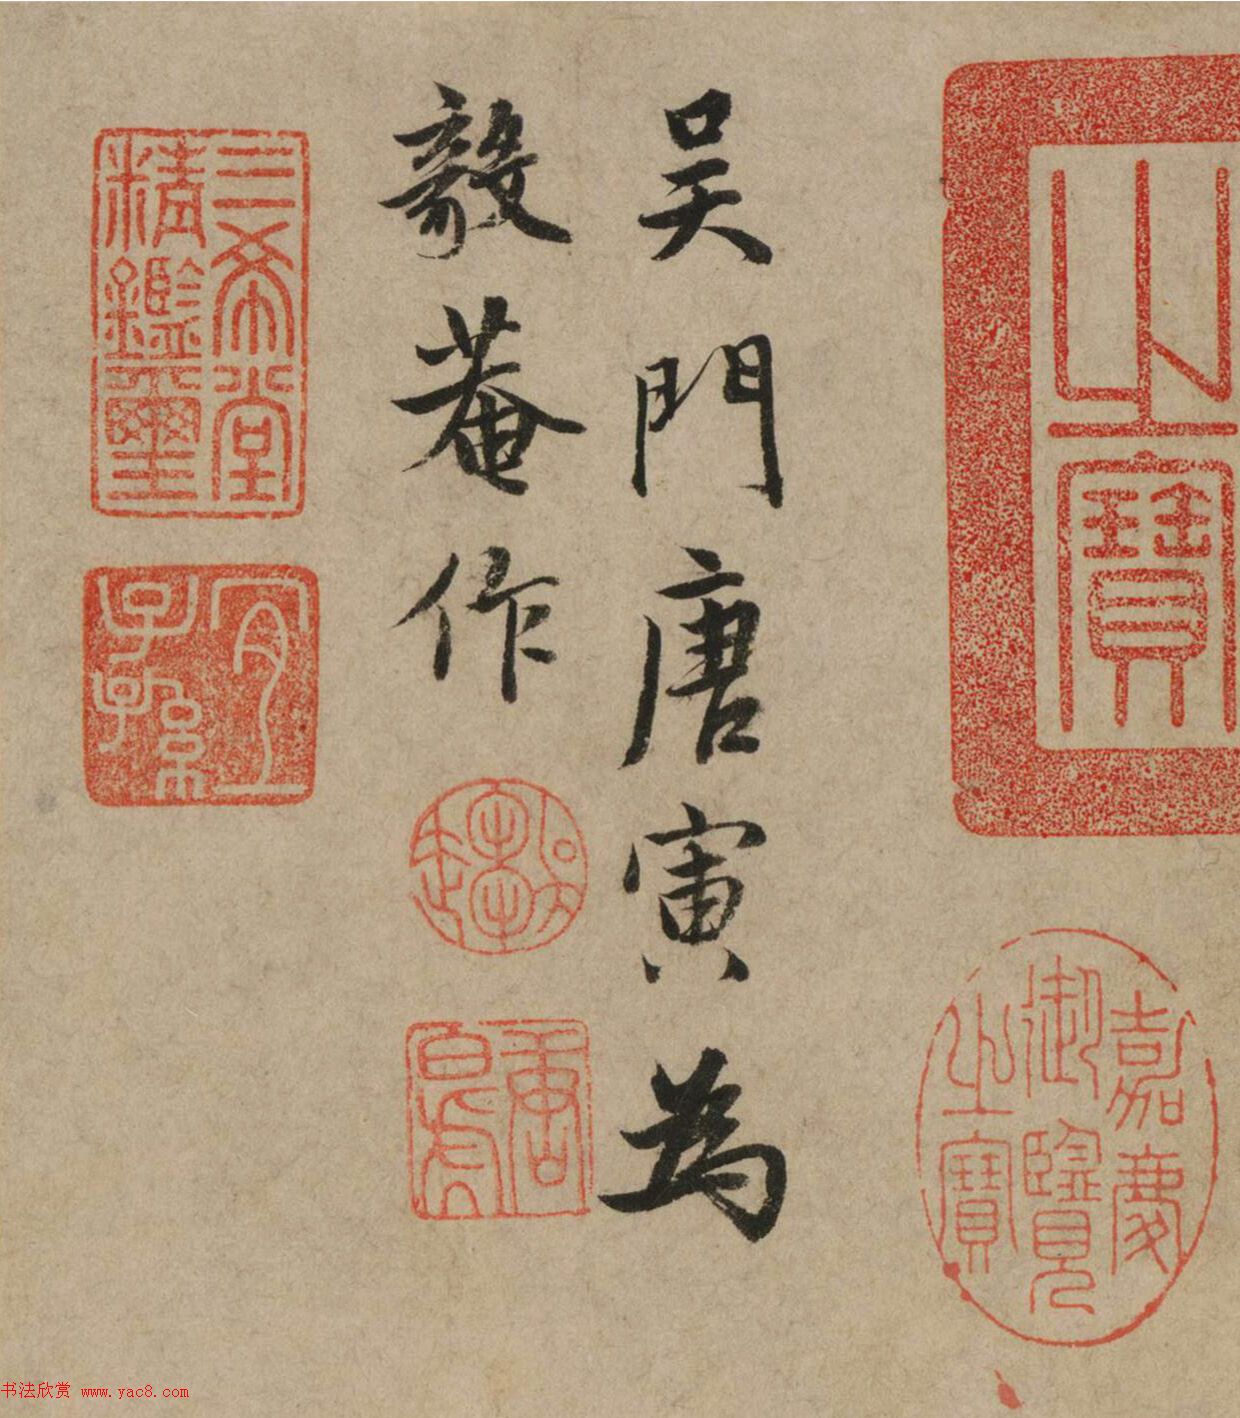 之寶
嘉慶
御覽
之寶
吳門唐寅為
毅菴作
唐寅
三希堂
精鑑璽
宜
子孫
书法欣赏 www.yac8.com